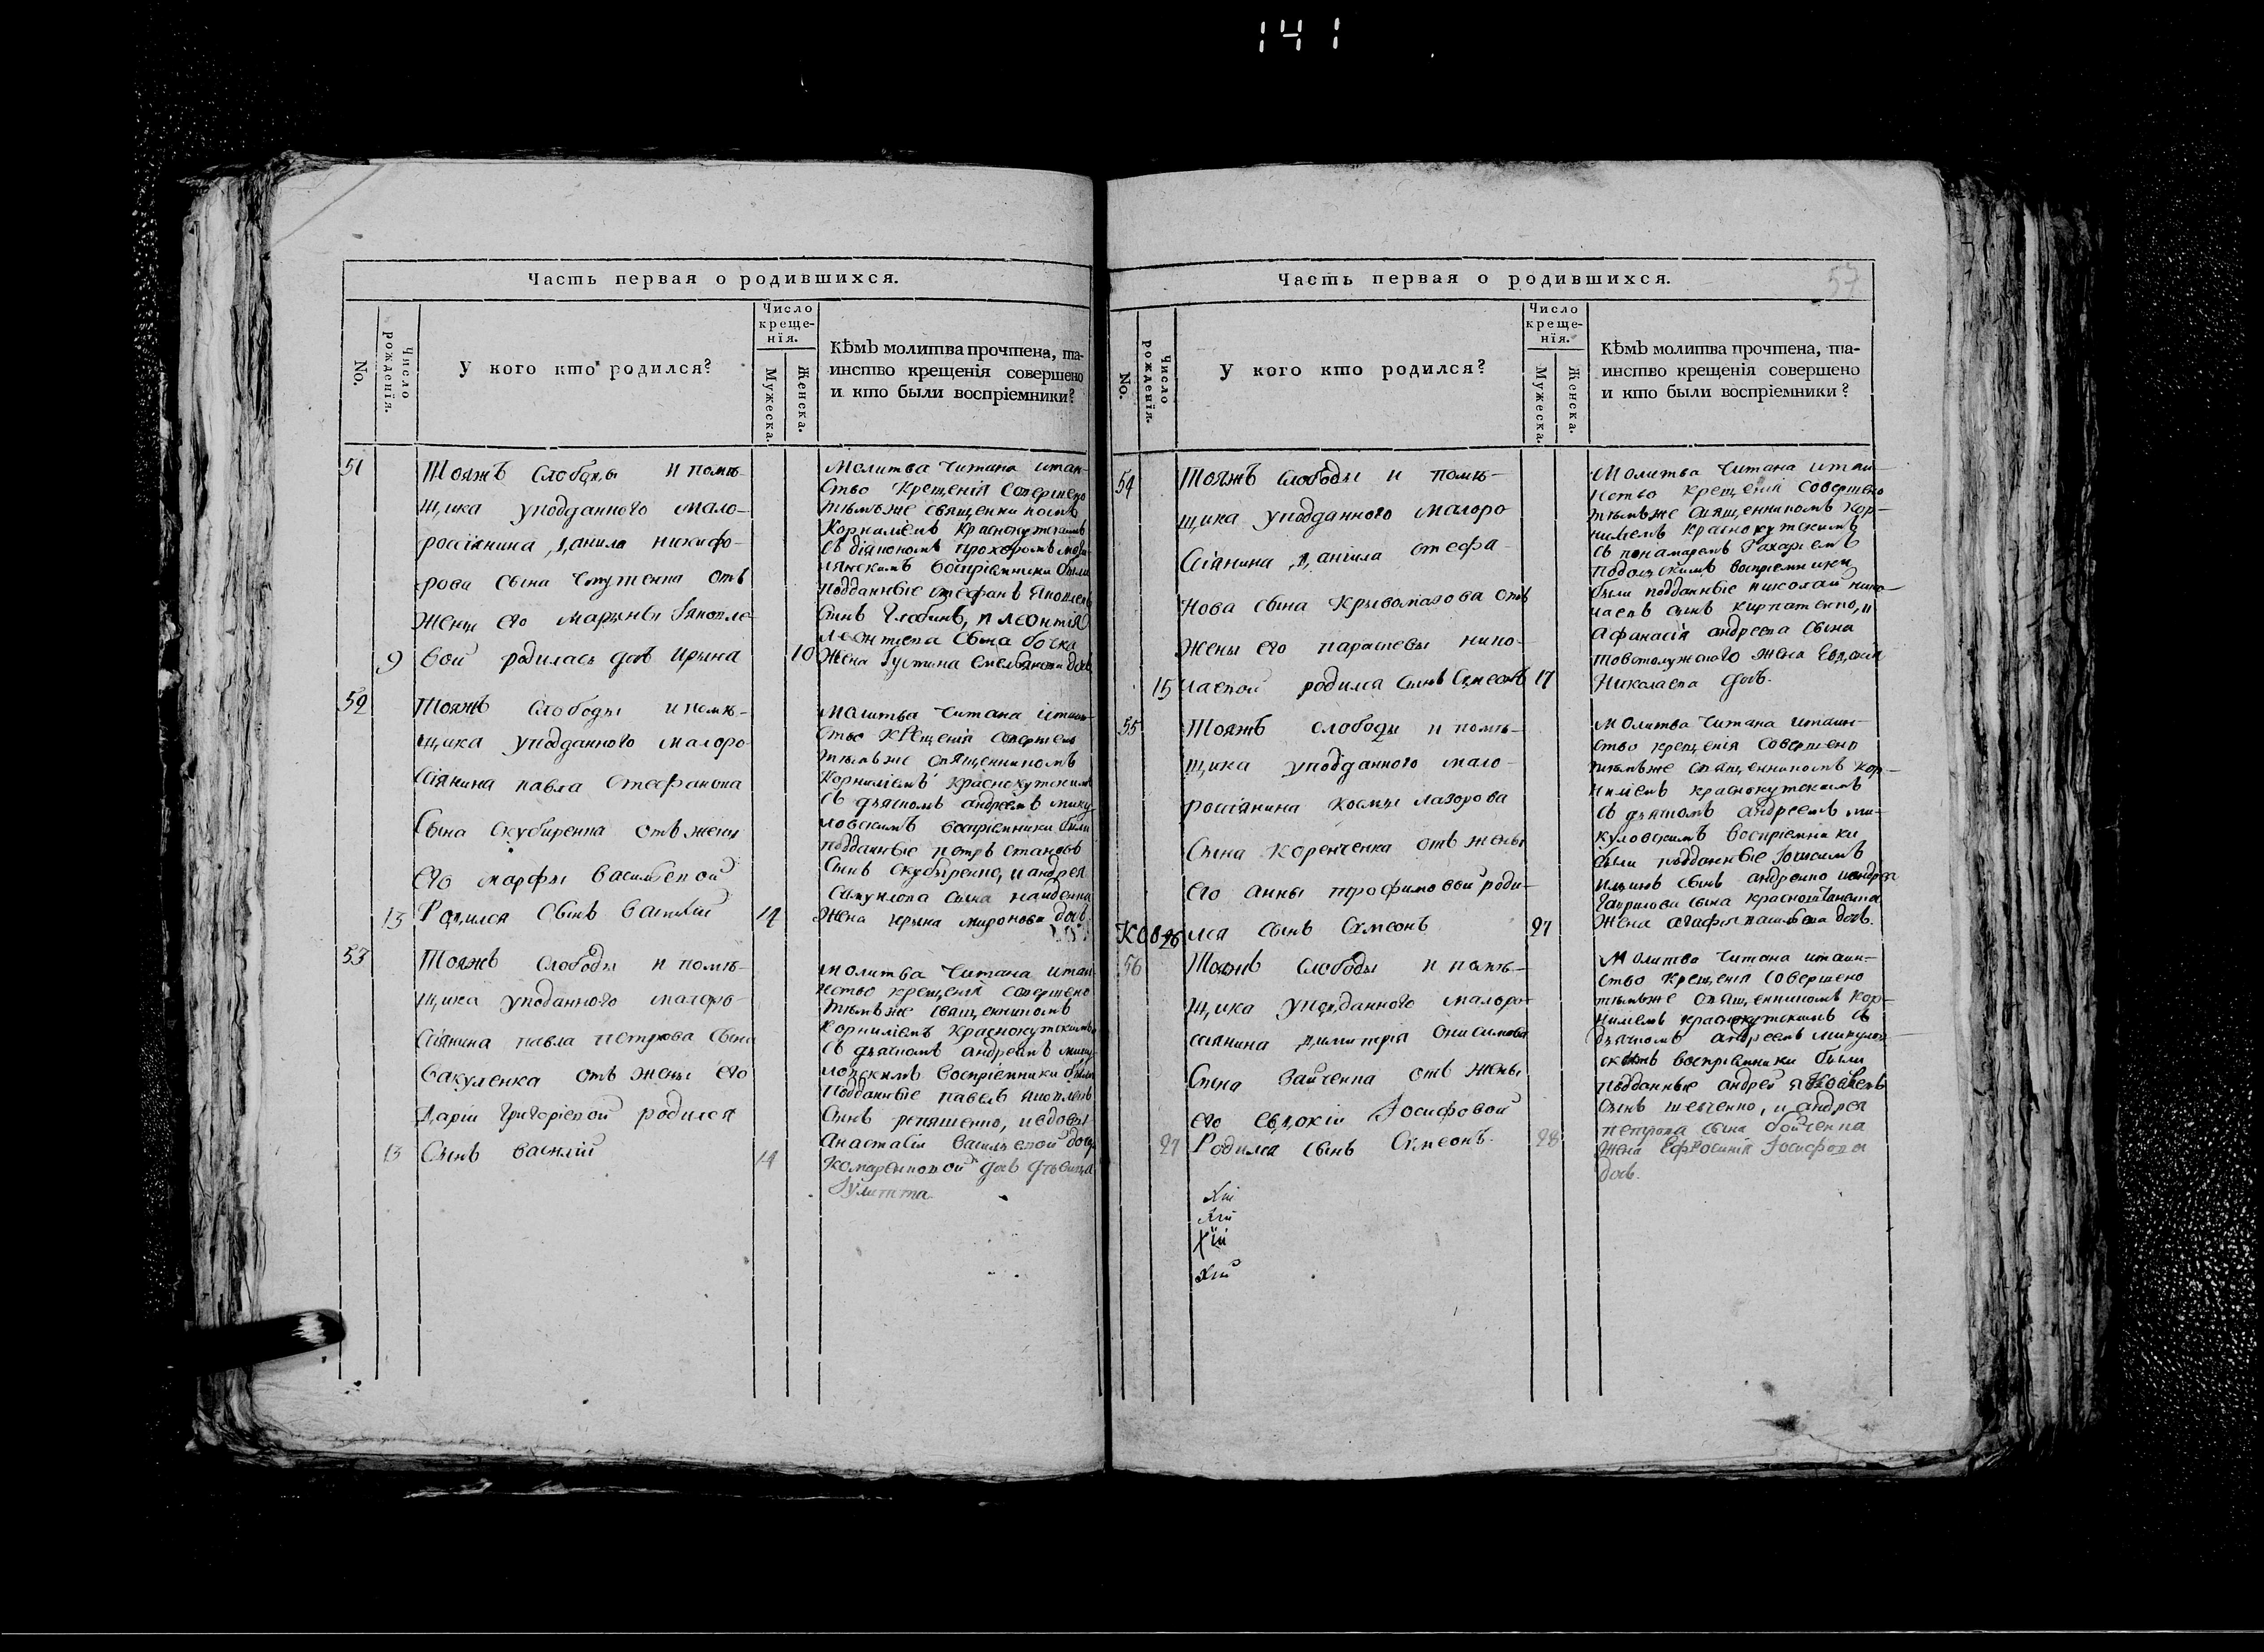 141
Часть первая о родившихся.
No.
Число рожденія.
У кого кто родился?
Число
креще-
нія.
Мужеска.
Женска.
Кѣмъ молитва прочтена, та-
инство крещенія совершено
и кто были воспріемники?
51
Тояжъ слободы и помѣ-
щика уподданного мало-
россіянина данила никифо-
рова сына отъ
жены его марины
9 вой родилась дочь Ирына 10
Молитва читана итаи-
ство крещенія совершено
тѣмъже священникомъ
Корниліемъ краснокутскимъ
съ діякономъ прохоромъ
воспріемники были
подданные стефанъ яковлевъ
сынъ и леонтія
леонтіева сына бочка
жена Іустина дочь
52
Тояжъ слободы и помѣ-
щика уподданного малоро
ссіянина павла стефанова
сына скубиренка отъ жены
его марфы василіевой
13 Родился сынъ василій 14
молитва читана итаин-
ство крещенія совершено
тѣмъже священникомъ
Корниліемъ краснокутскимъ
съ дьячкомъ андреемъ мику-
ловскимъ воспріемники были
подданные петръ
сынъ скубыренко, и андрея
самуилова сына найденка
жена ирына миронова дочь
53
Тояжъ слободы и помѣ-
щика уподанного малоро-
ссіянина павла петрова сына
бакуленка отъ жены его
Даріи григоріевой родился
13 Сынъ василій 14
молитва читана итаи-
нство крещенія совершено
тѣмъже священникомъ
Корниліемъ краснокутскимъ
съ дьячкомъ андреемъ мику-
ловскимъ воспріемники были
подданные павелъ яковлевъ
сынъ репяшенко, ивдовы
анастасіи василіевой дочь
комаренковой дочь дѣвица
Іулитта
Часть первая о родившихся.
57
No.
Число рожденія.
У кого кто родился?
Число
креще-
нія.
Мужеска.
Женска.
Кѣмъ молитва прочтена, та-
инство крещенія совершено
и кто были воспріемники?
54
Тояжъ слободы и помѣ-
щика уподданного малоро
ссіянина даніила стефа-
нова сына кривомазова отъ
жены его парасковы нико-
15 лаевой родился сынъ Сѵмеонъ 17
Молитва читана итаи-
нство крещенія совершено
тѣмъже священникомъ Кор-
ниліемъ краснокутскимъ
съ понамаремъ Захаріемъ
подольскимъ воспріемники
были подданные николай нико-
лаевъ сынъ кирпатенко, и
афанасія андреева сына
жена Евдокія
Николаева дочь.
55
Тояжъ слободы и помѣ-
щика уподданного мало-
россіянина космы лазорова
сына коренченка отъ жены
его анны трофимовой роди-
26 лся сынъ Сѵмеонъ 27
Молитва читана итаин-
ство крещенія совершено
тѣмъже священникомъ кор-
ниліемъ краснокутскимъ
съ дьячкомъ андреемъ ми-
куловскимъ воспріемники
были подданные
сынъ андренко
гаврилова сына
жена агафія василіева дочь.
56
Тояжъ слободы и помѣ-
щика уподданного малоро-
ссіянина димитрія онисимова
сына зайченка отъ жены
его евдокіи Іосифовой
27 Родился сынъ Сѵмеонъ. 28
Молитва читана итаин-
ство крещенія совершено
тѣмъже священникомъ кор-
ниліемъ краснокутскимъ съ
дьячкомъ андреемъ микулов-
скимъ воспріемники были
подданные андрей яковлевъ
сынъ шевченко, и андрея
петрова сына бойченка
жена Ефросинія Іосифова
дочь.